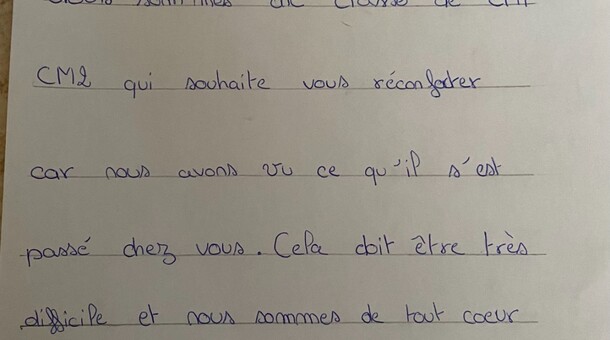 sommes une classe de CM1
CM2 qui souhaite vous réconforter
car nous avons vu ce qu'il s'est
passé chez vous. Cela doit être très
difficile et nous sommes de tout coeur